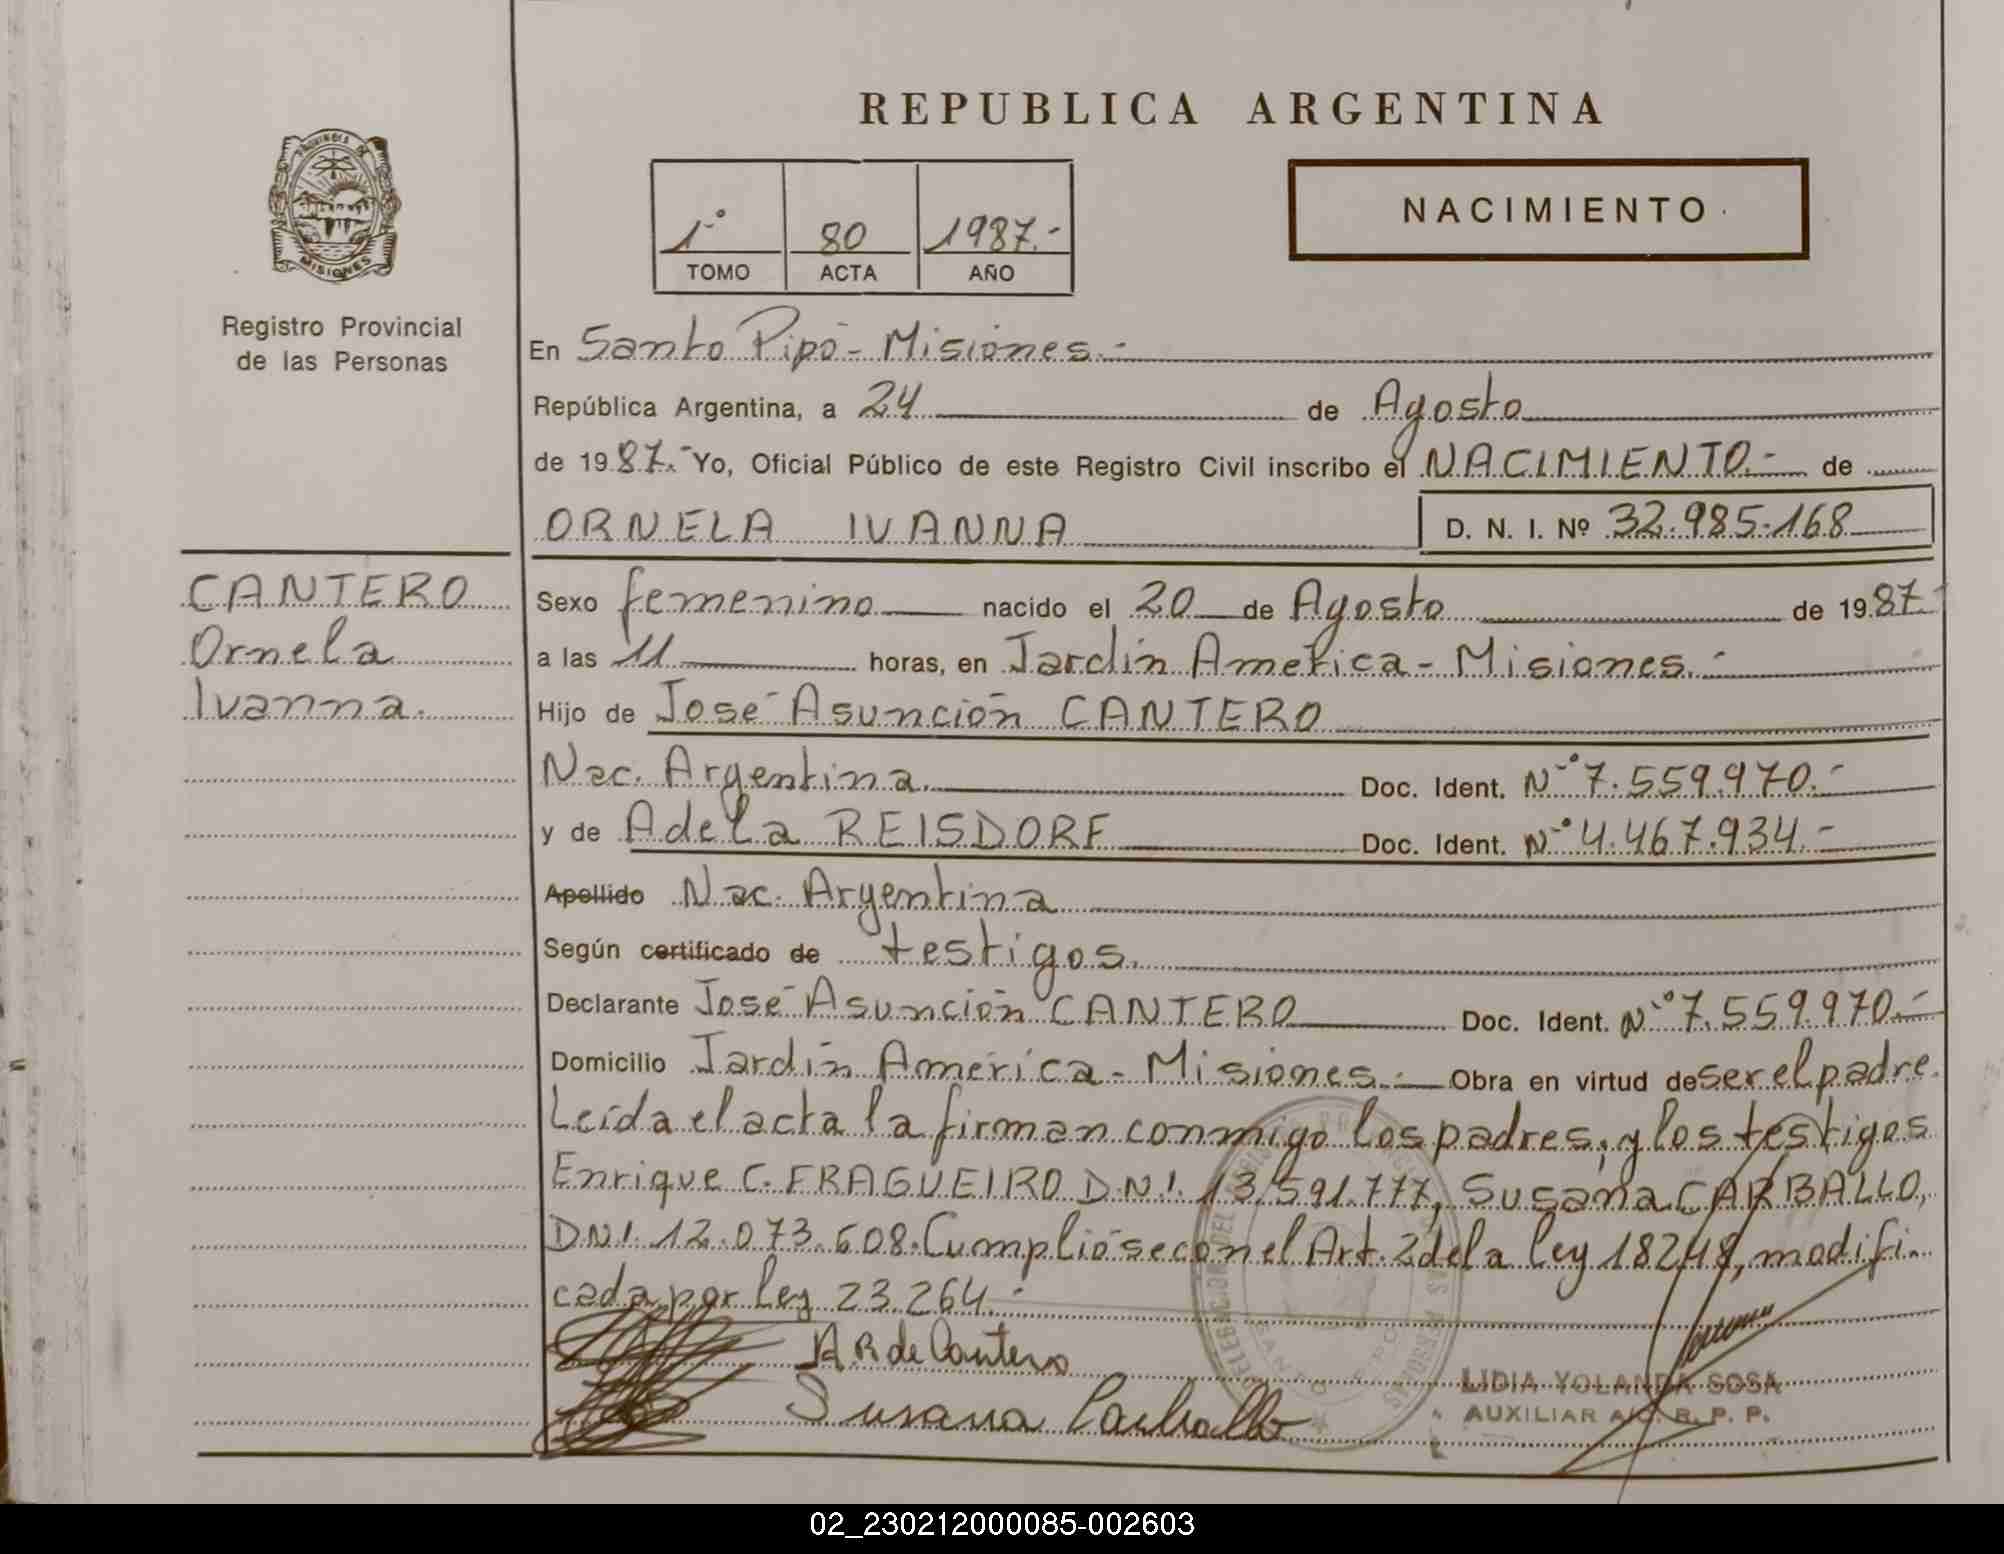 REPUBLICA ARGENTINA
PROVINCIA DE
MISIONES
Registro Provincial
de las Personas
1º 80 1987.-
TOMO ACTA AÑO
NACIMIENTO
En Santo Pipó - Misiones.-
República Argentina, a 24 de Agosto
de 1987.- Yo, Oficial Público de este Registro Civil inscribo el NACIMIENTO.- de
ORNELA IVANNA D. N. I. Nº 32.985.168
CANTERO
Ornela
Ivanna.
Sexo femenino nacido el 20 de Agosto de 1987.-
a las 11 horas, en Jardín América - Misiones.-
Hijo de José Asunción CANTERO
Nac. Argentina. Doc. Ident. Nº 7.559.970.-
y de Adela REISDORF Doc. Ident. Nº 4.467.934.-
Apellido Nac. Argentina
Según certificado de testigos.
Declarante José Asunción CANTERO Doc. Ident. Nº 7.559.970.-
Domicilio Jardín América - Misiones.- Obra en virtud de ser el padre.
Leída el acta la firman conmigo los padres, y los testigos
Enrique C. FRAGUEIRO D.N.I. 13.591.777, Susana CARBALLO,
DNI. 12.073.608. Cumplióse con el Art. 2 de la ley 18248, modifi-
cada por ley 23.264.-
A R de Cantero
Susana Carballo
LIDIA YOLANDA SOSA
AUXILIAR A/C. R. P. P.
02_230212000085-002603